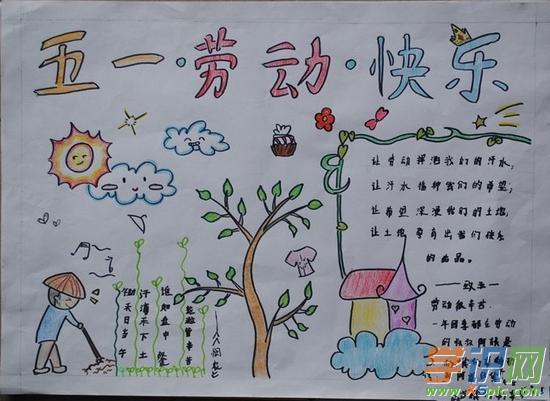 五一·劳动·快乐
让劳动挥洒我们的汗水,
让汗水播种我们的希望,
让希望深浸我们的土地,
让土地孕育出我们快乐
的品。
——致五一
劳动最辛苦
一年四季都在劳动
的叔叔阿姨是
禾日当午
汗滴禾下土
谁知盘中餐
粒粒皆辛苦
学识网
www.xSpic.com